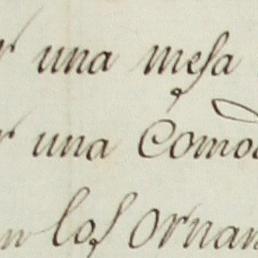 r una mesa
r una Comod
n los Ornam